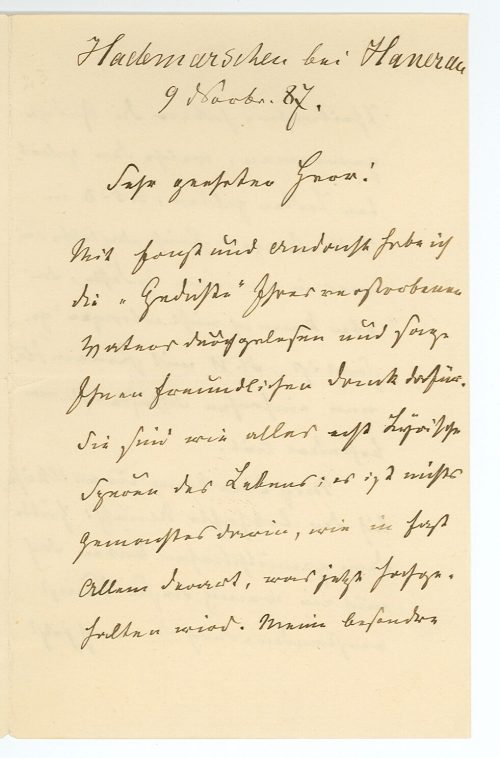 Hademarschen bei Hanerau
9 Novbr. 87.
Sehr geehrter Herr!
Mit Ernst und Andacht habe ich
die „Gedichte“ Ihres verstorbenen
Vaters durchgelesen und sage
Ihnen freundlichen Dank dafür.
Sie sind wie alles echt Lyrische
Spuren des Lebens; es ist nichts
gemachtes darin, wie in fast
Allem derart, was jetzt hochge-
halten wird. Meine besondre